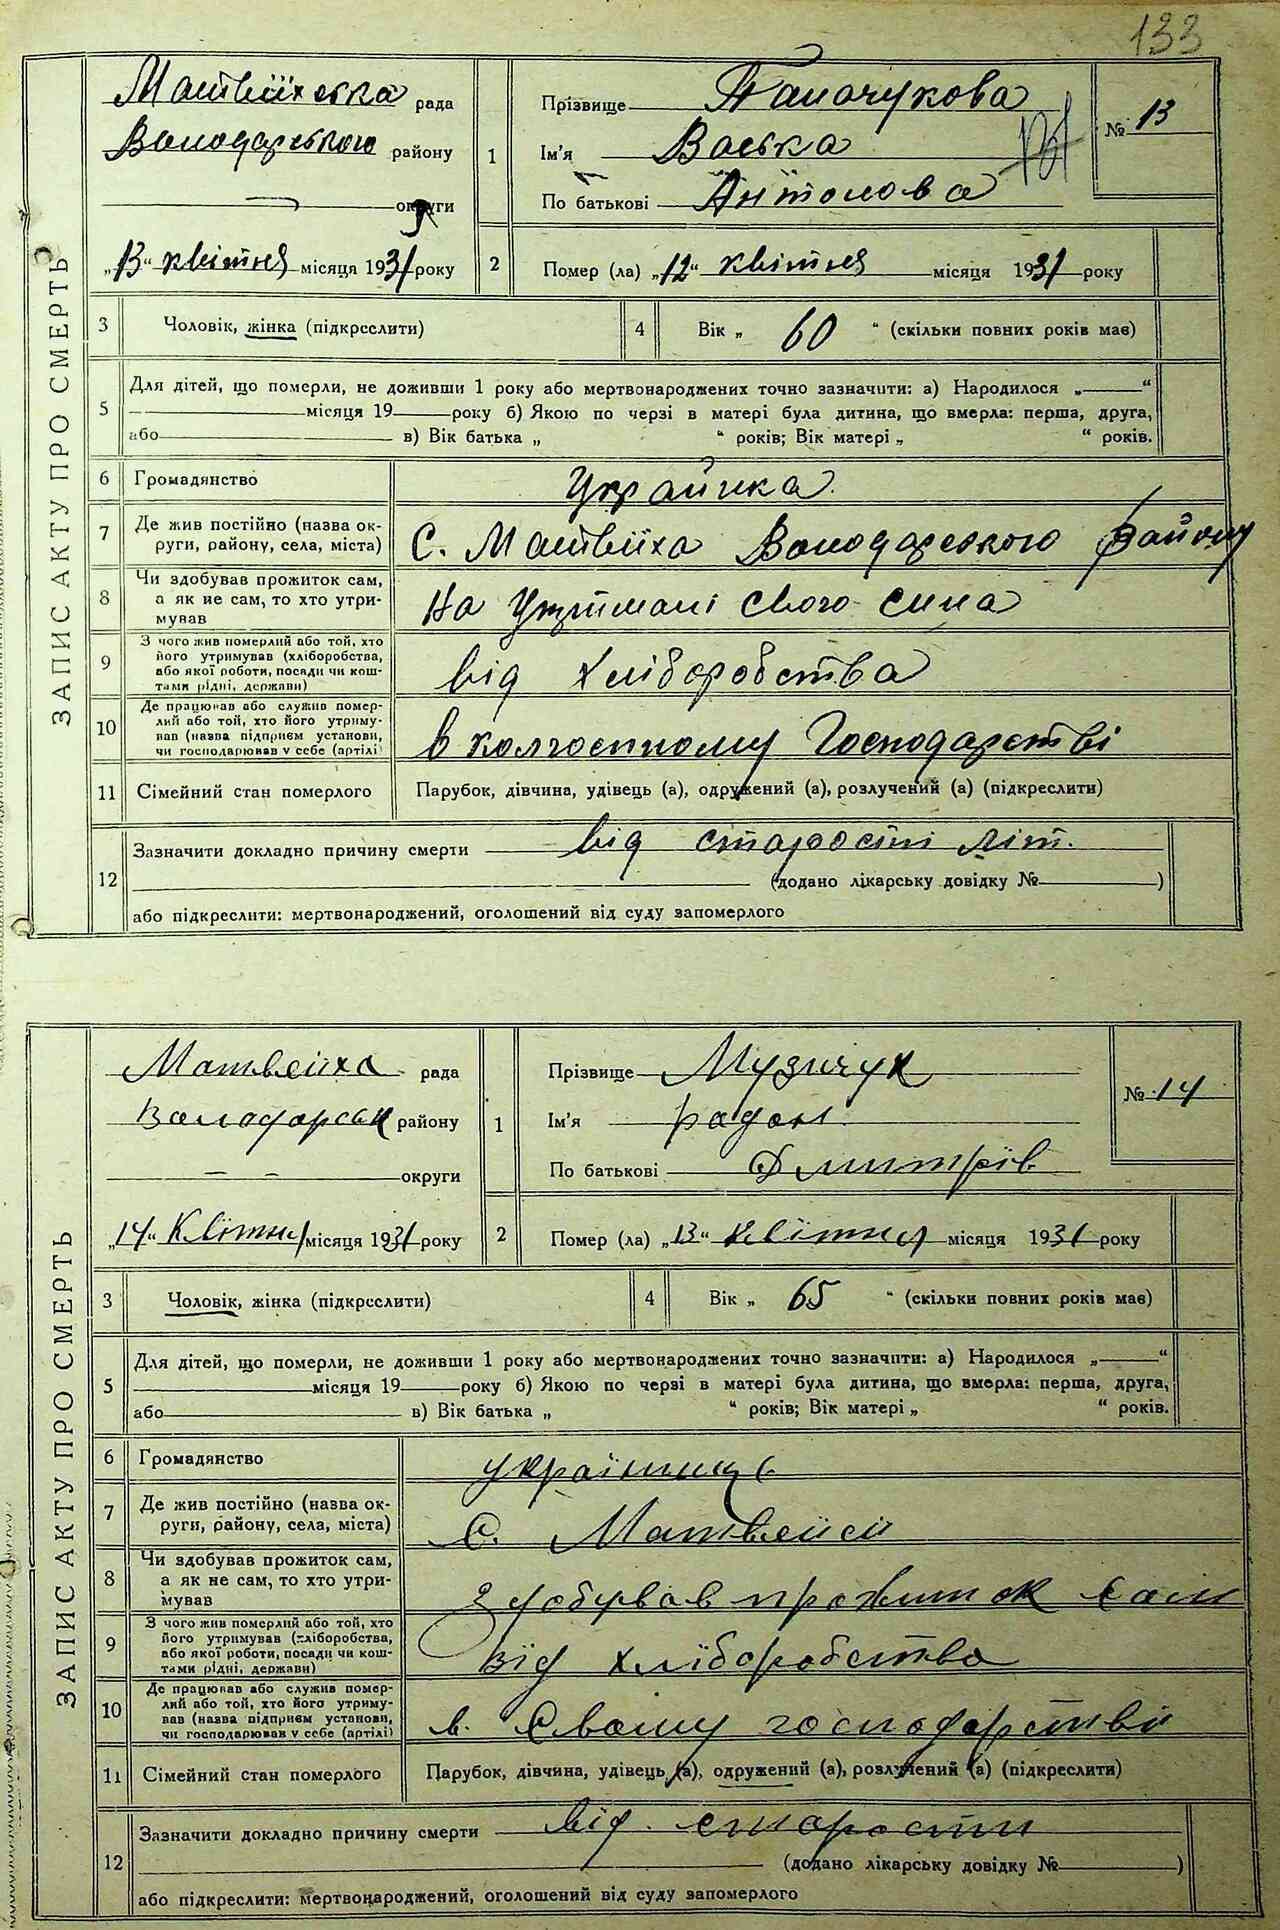 133
ЗАПИС АКТУ ПРО СМЕРТЬ
Матвіїхська рада
Володарського району
округи
„13" квітня місяця 1931 року
1
Прізвище
Ім'я Васька
По батькові Антонова
№ 13
2 Помер (ла) „12" квітня місяця 1931 року
3 Чоловік, жінка (підкреслити)
4 Вік „ 60 " (скільки повних років має)
5 Для дітей, що померли, не доживши 1 року або мертвонароджених точно зазначити: а) Народилося „ "
місяця 19 року б) Якою по черзі в матері була дитина, що вмерла: перша, друга,
або в) Вік батька „ " років; Вік матері „ " років.
6 Громадянство Українка
7 Де жив постійно (назва ок-
руги, району, села, міста) С. Матвіїха Володарського району
8 Чи здобував прожиток сам,
а як не сам, то хто утри-
мував На утримані свого сина
9 З чого жив померлий або той, хто
його утримував (хліборобства,
або якої роботи, посади чи кош-
тами рідні, держави) від хліборобства
10 Де працював або служив помер-
лий або той, хто його утриму-
вав (назва підприєм установи,
чи господарював у себе (артілі) в колгоспному Господарстві
11 Сімейний стан померлого Парубок, дівчина, удівець (а), одружений (а), розлучений (а) (підкреслити)
12 Зазначити докладно причину смерти від старості літ.
(додано лікарську довідку № )
або підкреслити: мертвонароджений, оголошений від суду запомерлого
ЗАПИС АКТУ ПРО СМЕРТЬ
Матвеиха рада
Володарськ району
округи
„14" Квітня місяця 1931 року
1
Прізвище Музичук
Ім'я Радон
По батькові Дмитрів
№ 14
2 Помер (ла) „13" Квітня місяця 1931 року
3 Чоловік, жінка (підкреслити)
4 Вік „ 65 " (скільки повних років має)
5 Для дітей, що померли, не доживши 1 року або мертвонароджених точно зазначити: а) Народилося „ "
місяця 19 року б) Якою по черзі в матері була дитина, що вмерла: перша, друга,
або в) Вік батька „ " років; Вік матері „ " років.
6 Громадянство українець
7 Де жив постійно (назва ок-
руги, району, села, міста) С.
8 Чи здобував прожиток сам,
а як не сам, то хто утри-
мував Здобував прожиток сам
9 З чого жив померлий або той, хто
його утримував (хліборобства,
або якої роботи, посади чи кош-
тами рідні, держави) Від хліборобства
10 Де працював або служив помер-
лий або той, хто його утриму-
вав (назва підприєм установи,
чи господарював у себе (артілі) в. Свому господарстві
11 Сімейний стан померлого Парубок, дівчина, удівець (а), одружений (а), розлучений (а) (підкреслити)
12 Зазначити докладно причину смерти від старости
(додано лікарську довідку № )
або підкреслити: мертвонароджений, оголошений від суду запомерлого